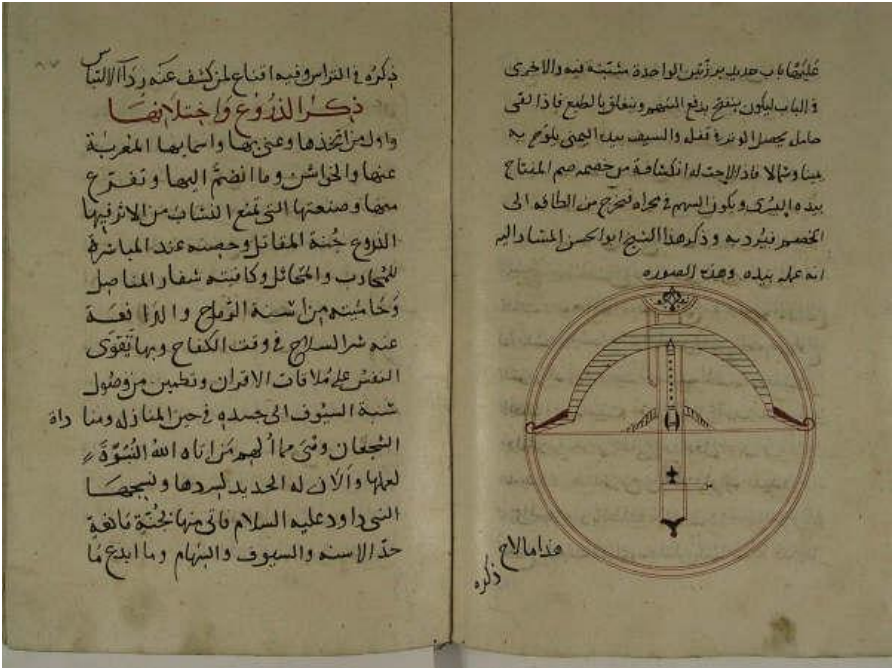 عليها باب حديد برزتين الواحدة مثبتة فيه والاخرى
في الباب ليكون ينفتح بدفع السهم وينغلق بالطبع فاذا لقى
حامله يحصل الوتر في قفله والسيف بيده اليمنى يلوّح به
يمينا وشمالا فاذا لاحت له انكشافة من خصمه ضم المفتاح
بيده اليسرى ويكون السهم في مجراه فيخرج من الطاقه الى
الخصم فيرديه وذكر هذا الشيخ ابو الحسن المشار اليه
انه عمله بيده وهذه الصوره
هذا ما لاح
ذكره
ذكره في التراس وفيه اقناع لمن كشف عنه ردآ الالتباس
ذكر الدروع واختلافها
واول من اتخذها وعنى بها واسمايها المعربة
عنها والجواشن وما انضمّ اليها وتفرع
منها وصنعتها التي تمنع النشاب من الاثر فيها
الدروع جُنة المقاتل وحصنه عند المباشرة
للمحارب والمخاتل وكافيته شفار المناصل
وحاميته من اسنة الرماح والدافعة
عنه شر السلاح في وقت الكفاح وبها تقوى
النفس على ملاقات الاقران وتطمين من وصول
شبة السيوف الى جسده في حين المنازله ومناداة
الشجعان وهي مما ألهم من اتاه الله النبوّة
لعملها وألان له الحديد لسردها ونسجها
النبي داود عليه السلام فاتى منها بجُنّةٍ مانعةٍ
حدّ الاسنه والسيوف والسهام وما ابدع ما